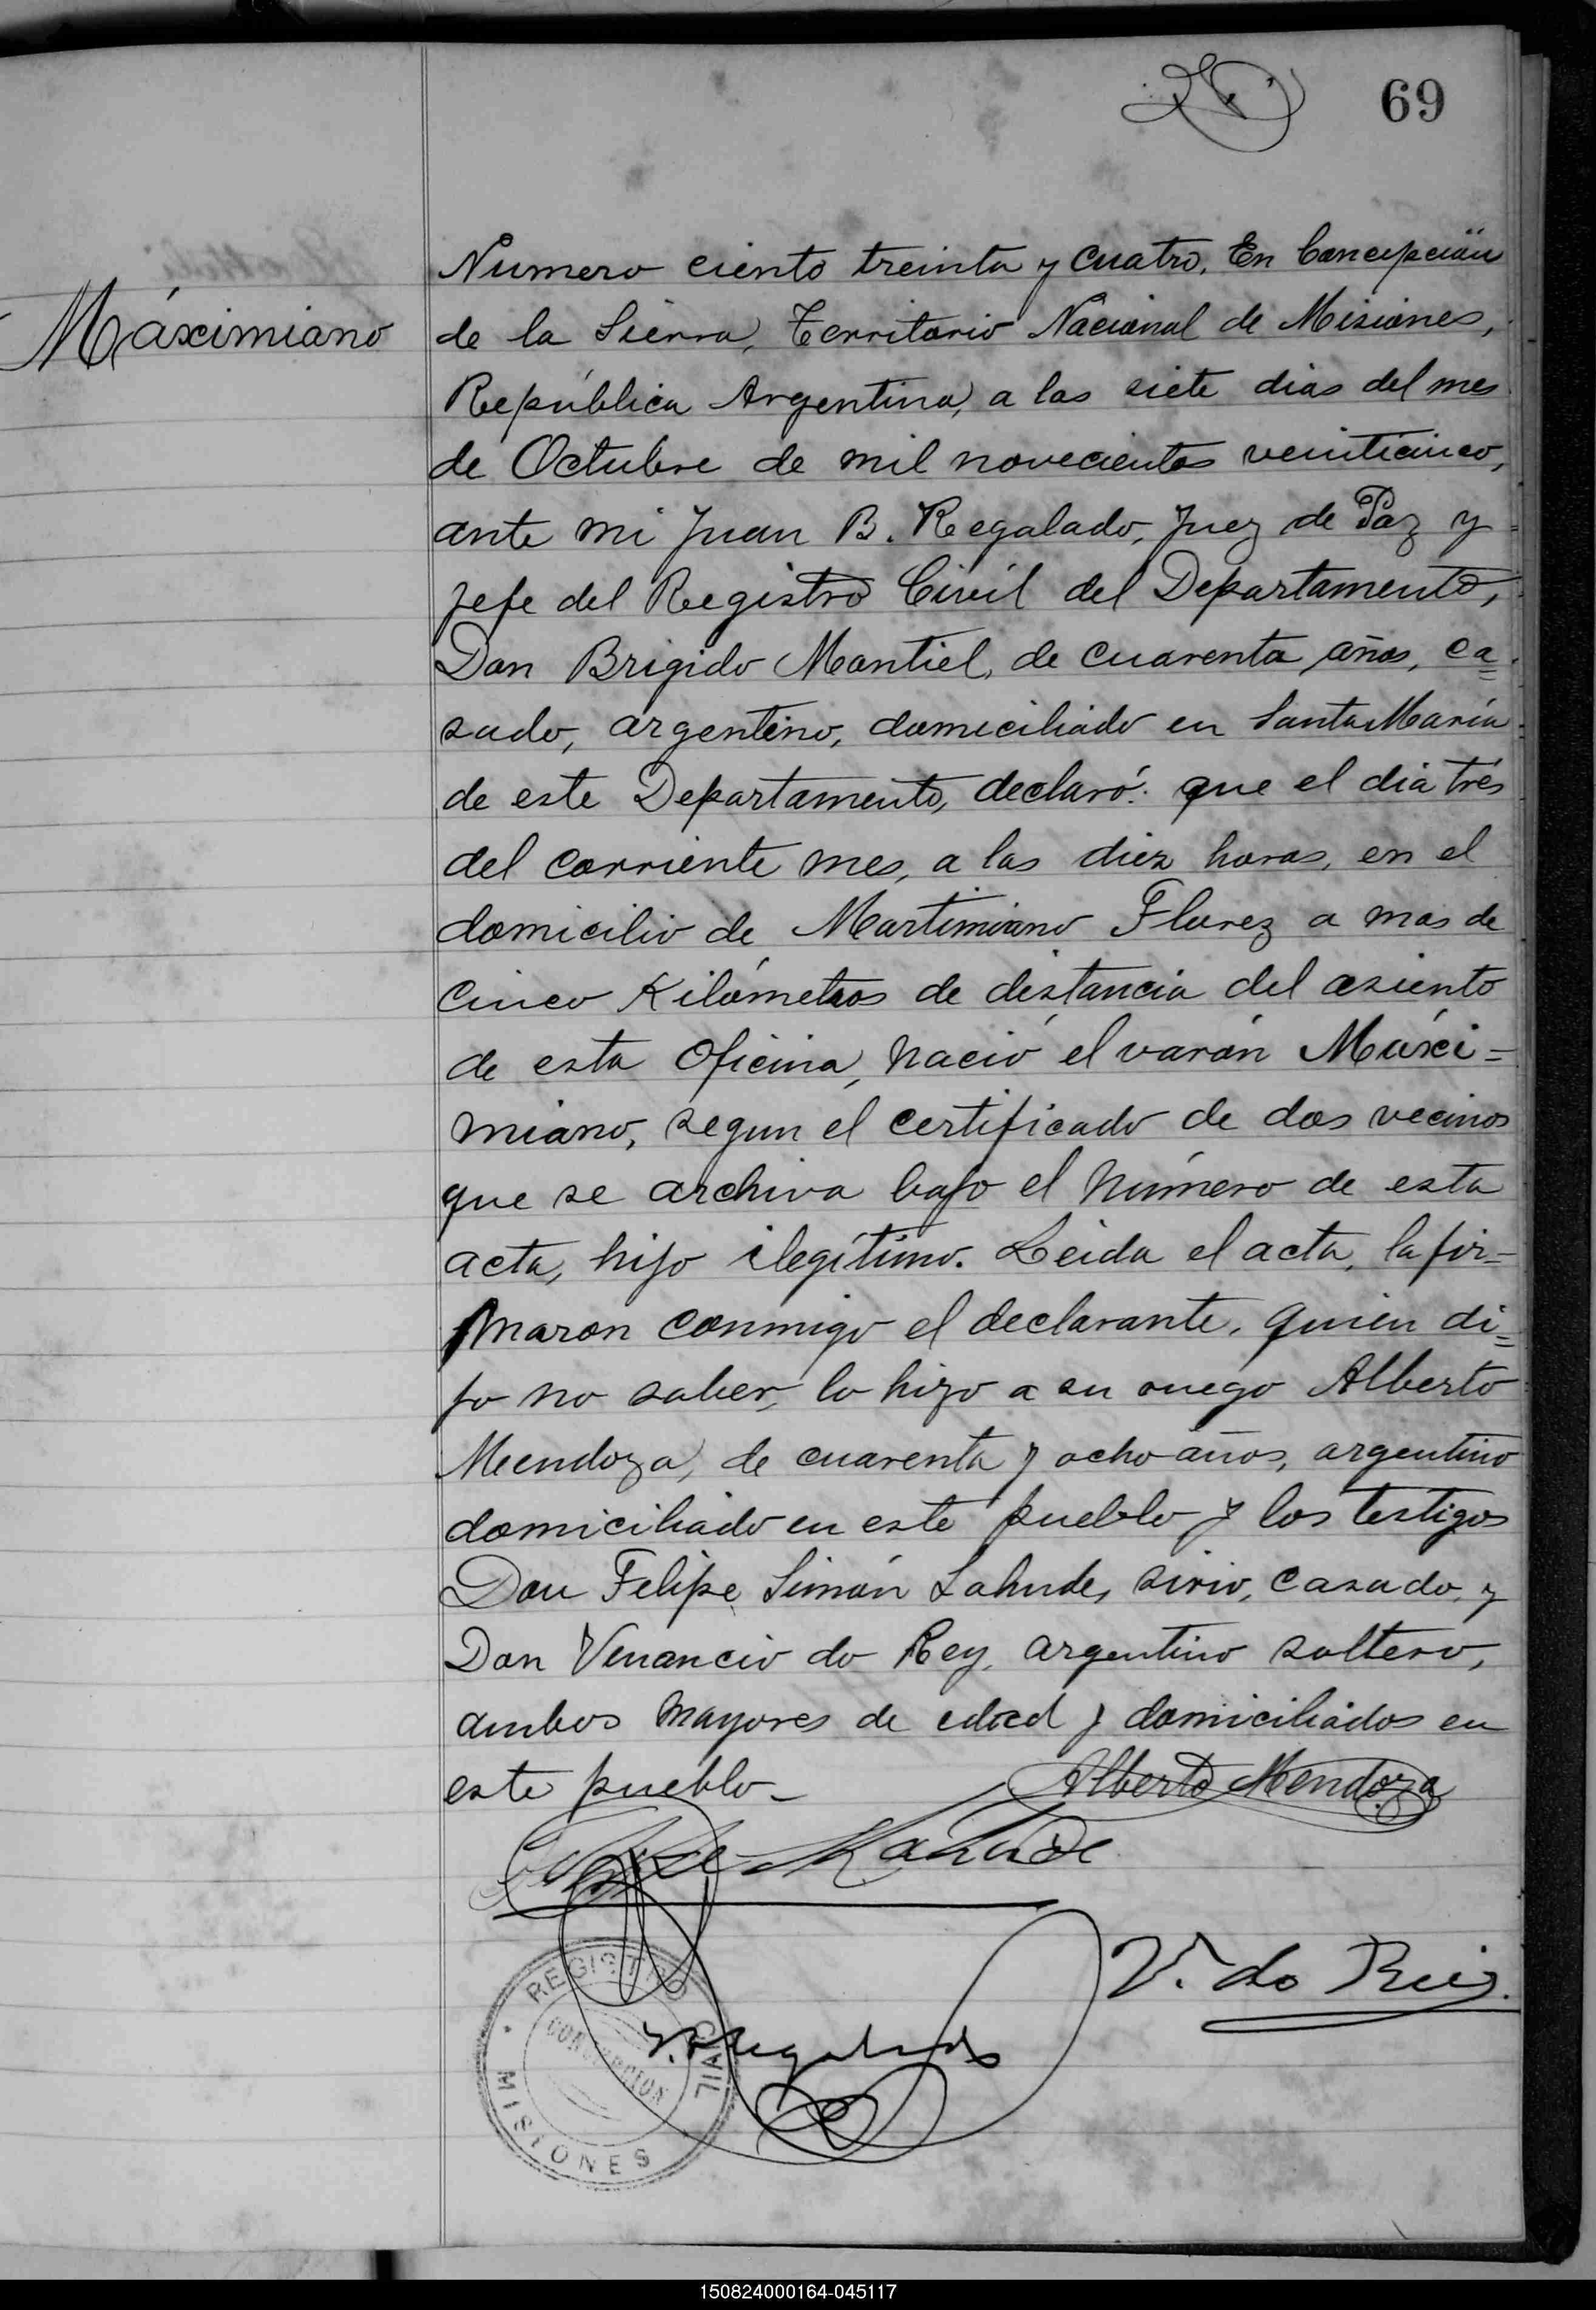 69
Máximiano
Numero ciento treinta y cuatro. En Concepción
de la Sierra, Territorio Nacional de Misiones,
República Argentina, a los siete dias del mes
de Octubre de mil novecientos veinticinco,
ante mi Juan B. Regalado, Juez de Paz y
Jefe del Registro Civil del Departamento,
Don Brigido Montiel, de cuarenta años, ca=
sado, argentino, domiciliado en Santa María
de este Departamento, declaró: que el día trés
del corriente mes, a las diez horas, en el
domicilio de Martimiano Florez a mas de
cinco Kilómetros de distancia del asiento
de esta Oficina, nació el varón Máxi=
miano, segun el certificado de dos vecinos
que se archiva bajo el número de esta
acta, hijo ilegítimo. Leida el acta, la fir=
maron conmigo el declarante, quien di=
jo no saber, lo hizo a su ruego Alberto
Mendoza, de cuarenta y ocho años, argentino
domiciliado en este pueblo y los testigos
Don Felipe Simón Lahude, sirio, casado, y
Don Venancio do Rey, argentino soltero,
ambos mayores de edad y domiciliados en
este pueblo_
Alberto Mendoza
Felipe S. Lahude
V. do Rei.
J. B. Regalado
REGISTRO CIVIL
CONCEPCION
MISIONES
150824000164-045117